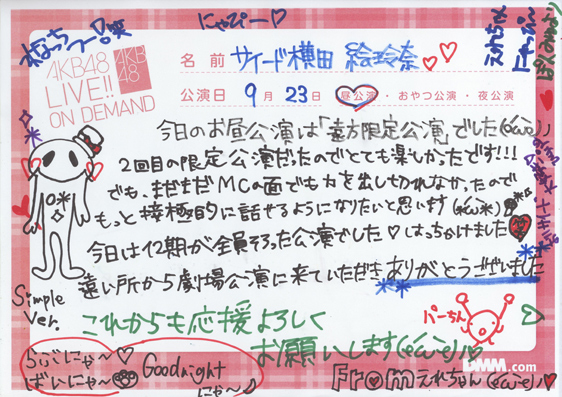 にゃぴー♡
ねっちー♡笑
えれちゃん
にゃっぴー
AKB48
LIVE!!
ON DEMAND
AKB
48
名前 サイード横田 絵玲奈 ♡♡
公演日 9月23日 昼公演・おやつ公演・夜公演
今日のお昼公演は「遠方限定公演」でした
2回目の限定公演だったのでとても楽しかったです!!!
でも、まだまだMCの面でも力を出し切れなかったので
もっと接極的に話せるようになりたいと思います
今日は12期が全員そろった公演でした♡はっちゃけました
遠い所から劇場公演に来ていただきありがとうございました
Simple
Ver.
これからも応援よろしく
お願いします
パーちん
らぶにゃ〜♡
ばいにゃ〜
Goodnight
にゃ〜♪
DMM.com
Fromえれちゃん